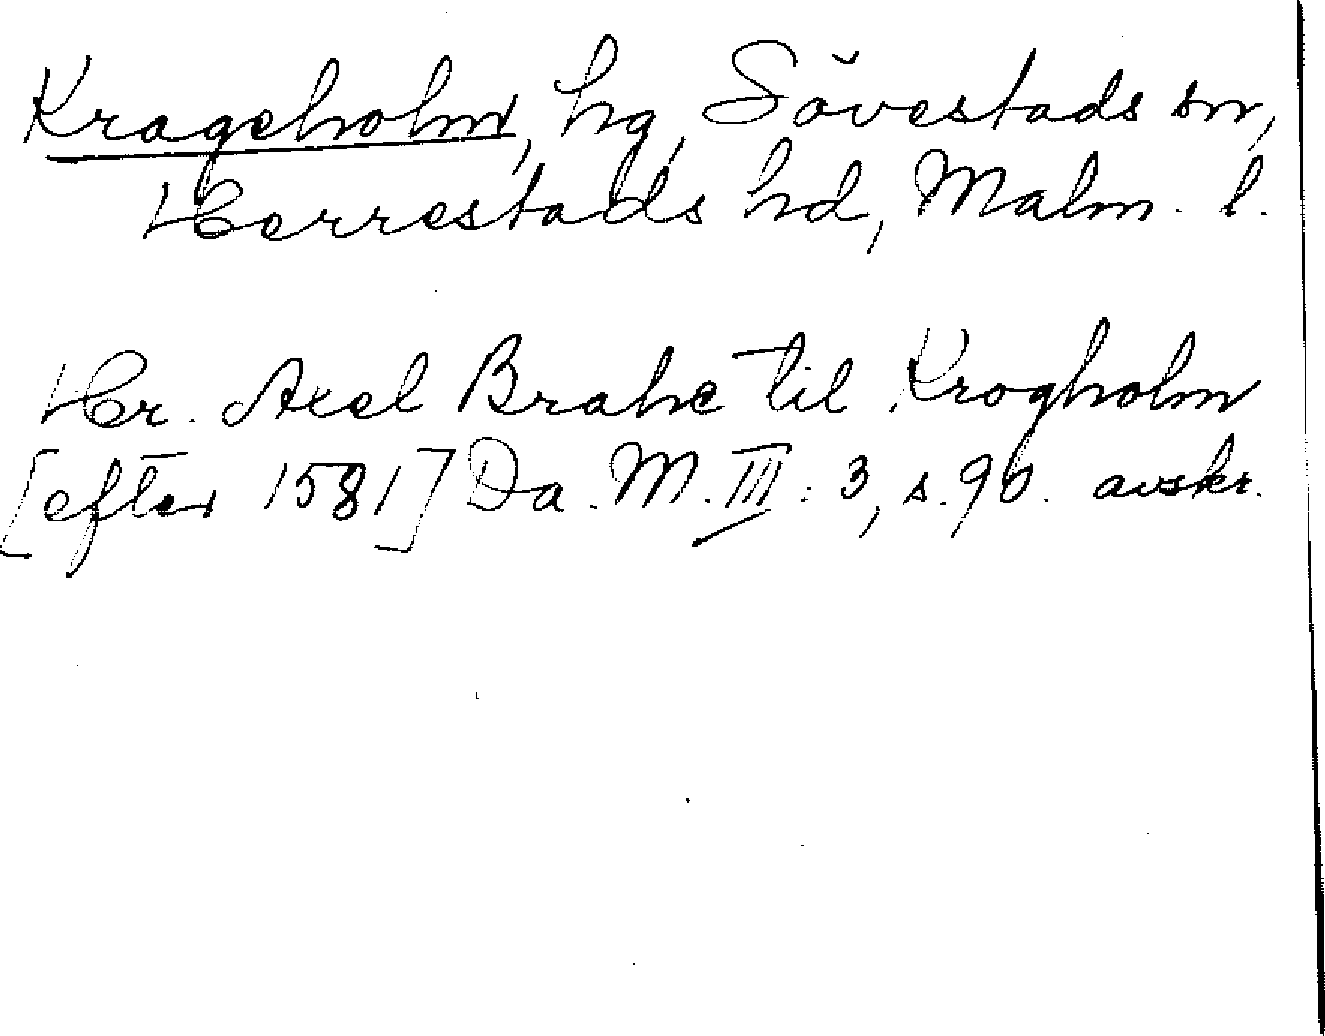 Krageholm, hg, Sövestads sn,
Herrestads hd, Malm. l.
Hr. Axel Brahe til Krogholm
[efter 1581] Da. M. III: 3, s. 90. avskr.